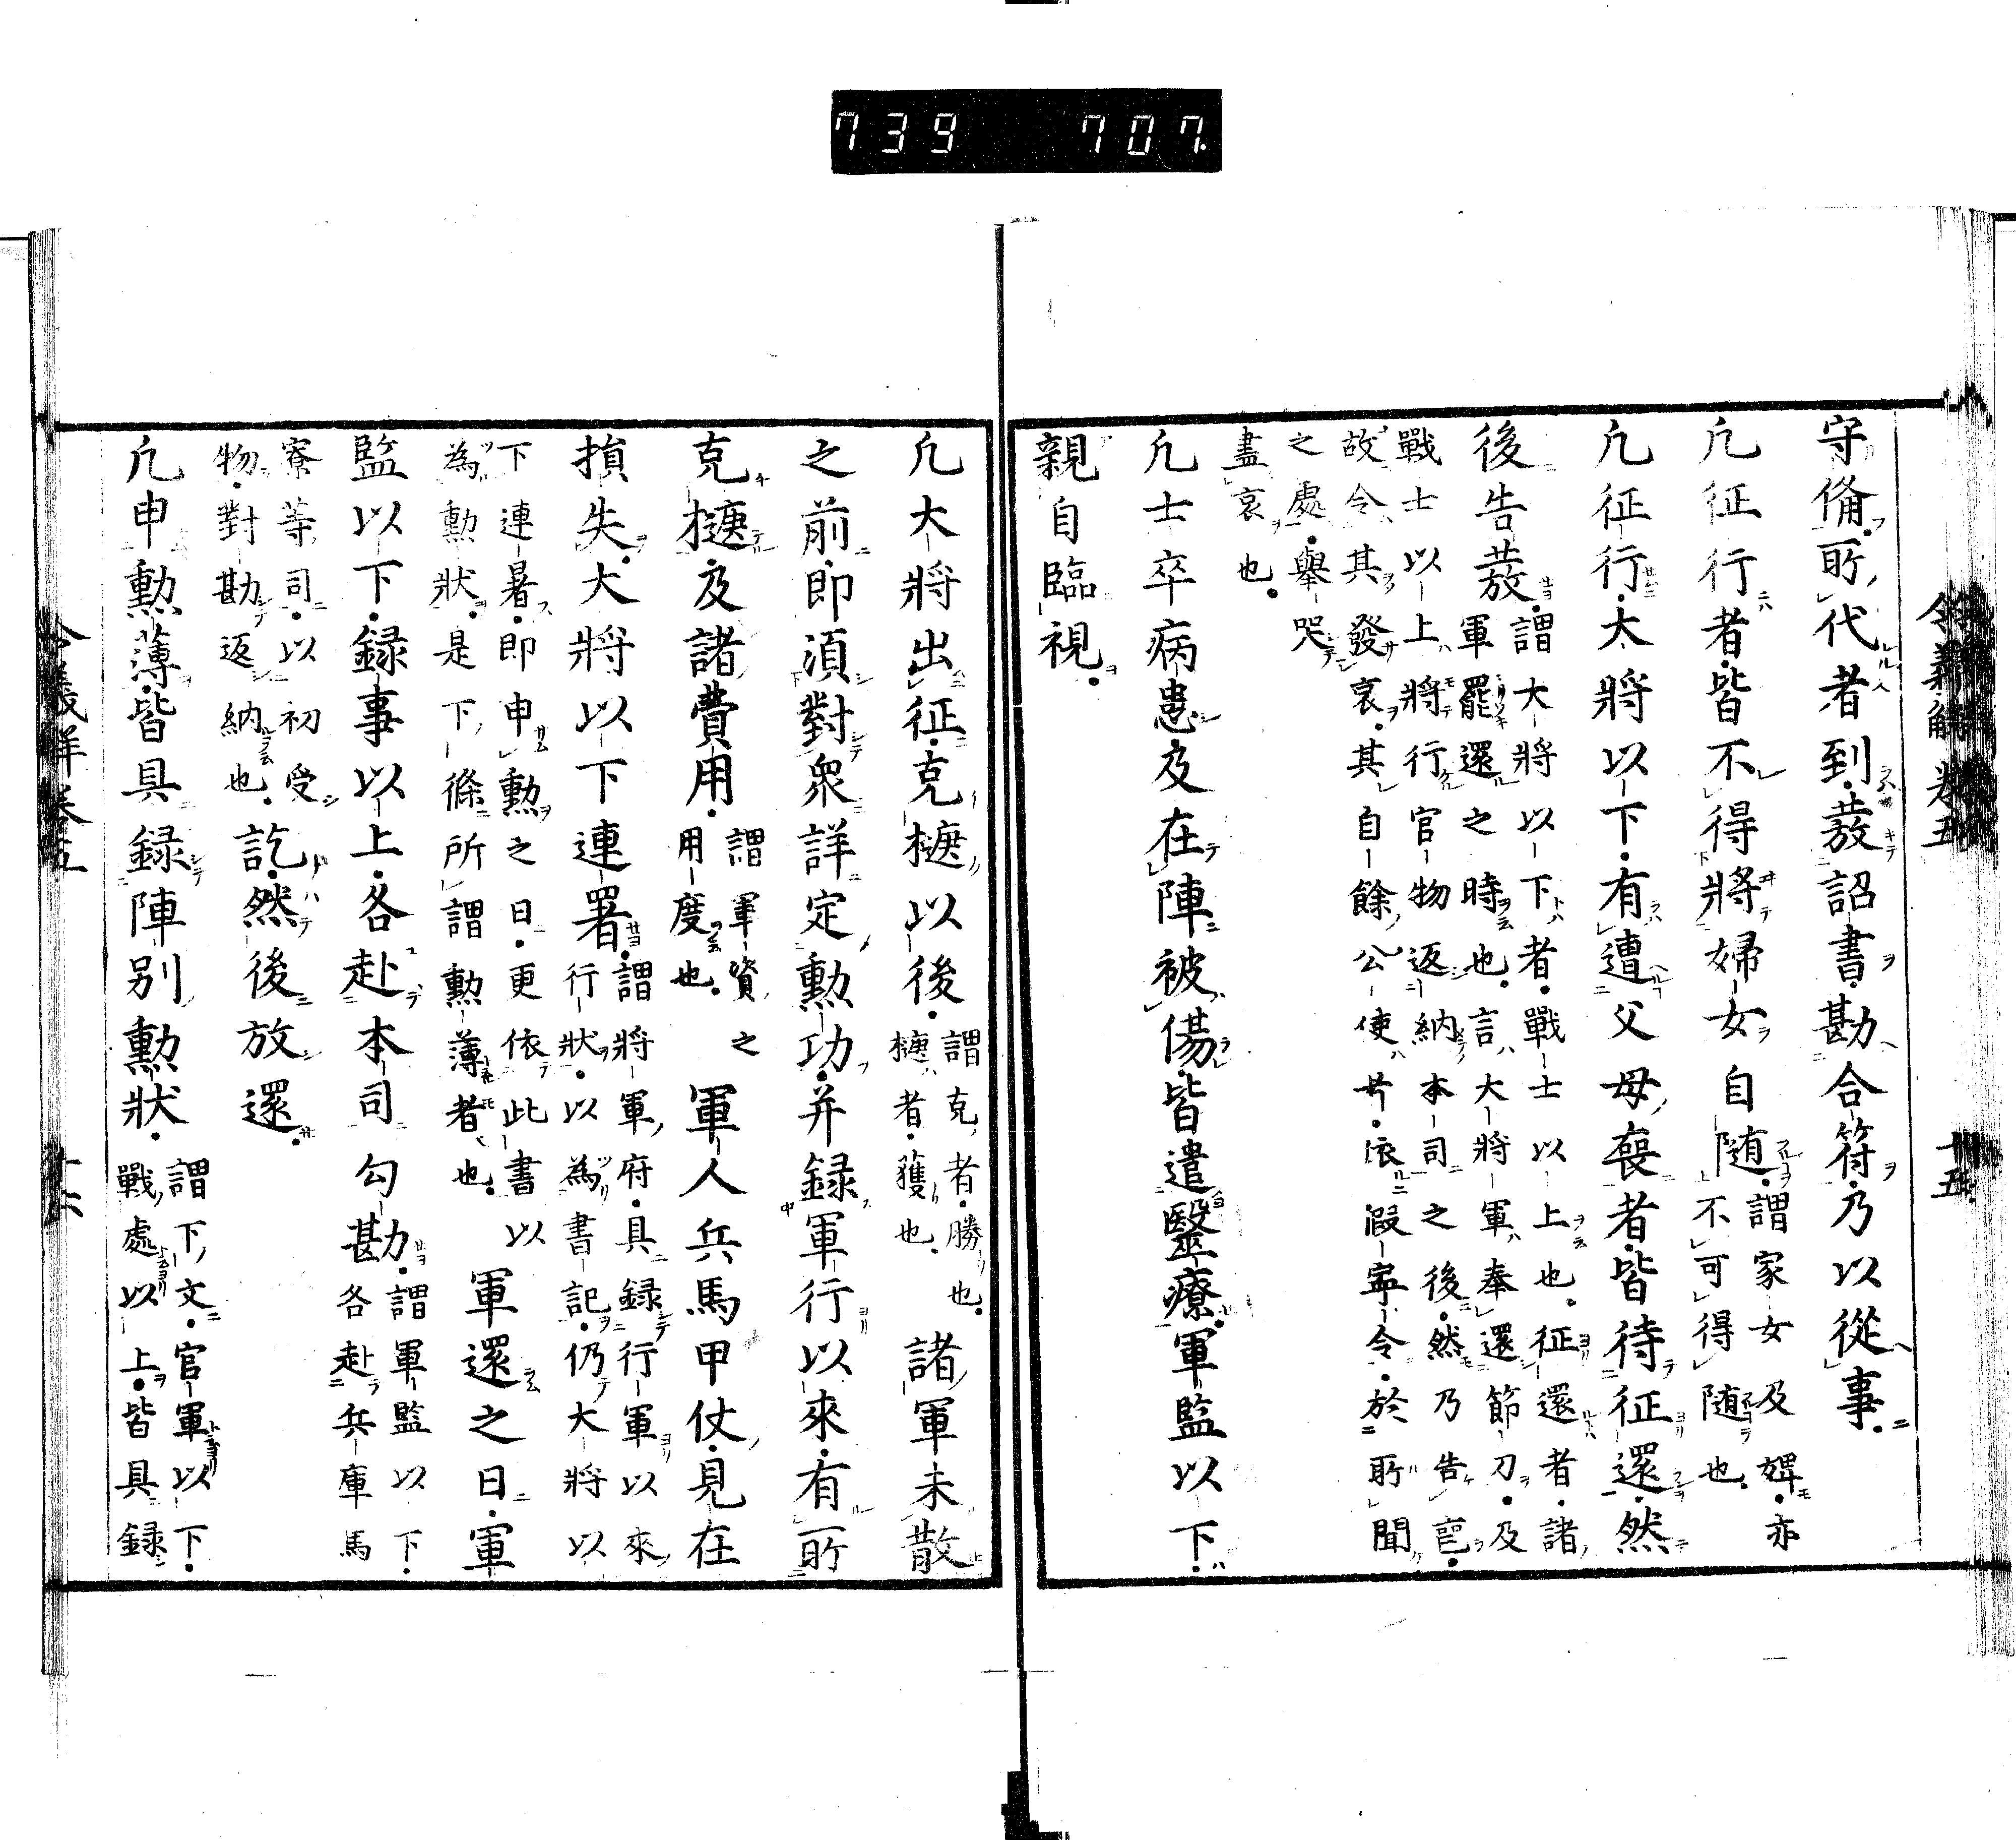 739 707.
令義解 卷五 十五
守俻所代者到發詔書勘合符乃以從事
凡征行者皆不得將婦女自随謂家女及婢亦
不可得随也
凡征行大將以下有遭父母喪者皆待征還然
後告發謂大將以下者戰士以上也征還者諸
軍罷還之時也言大將軍奉還節刀及
戰士以上將行官物返納本司之後然乃告䘮
故令其發哀其自餘公使并依假寧令於所聞
之處舉哭
盡哀也
凡士卒病患及在陣被傷皆遣醫療軍監以下
親自臨視
凡大將出征克捷以後謂克者勝也
捷者獲也諸軍未散
之前即須對衆詳定勲功并録軍行以來有所
克捷及諸費用謂軍資之
用度也軍人兵馬甲仗見在
損失大將以下連署謂將軍府具録行軍以來
行狀以為書記仍大將以
下連署即申勲之日更依此書以
為勲狀是下條所謂勲薄者也軍還之日軍
監以下録事以上各赴本司勾勘謂軍監以下
各赴兵庫馬
寮等司以初受
物對勘返納也訖然後放還
凡申勲薄皆具録陣別勲狀謂下文官軍以下
戰處以上皆具録
令義解卷五 十六